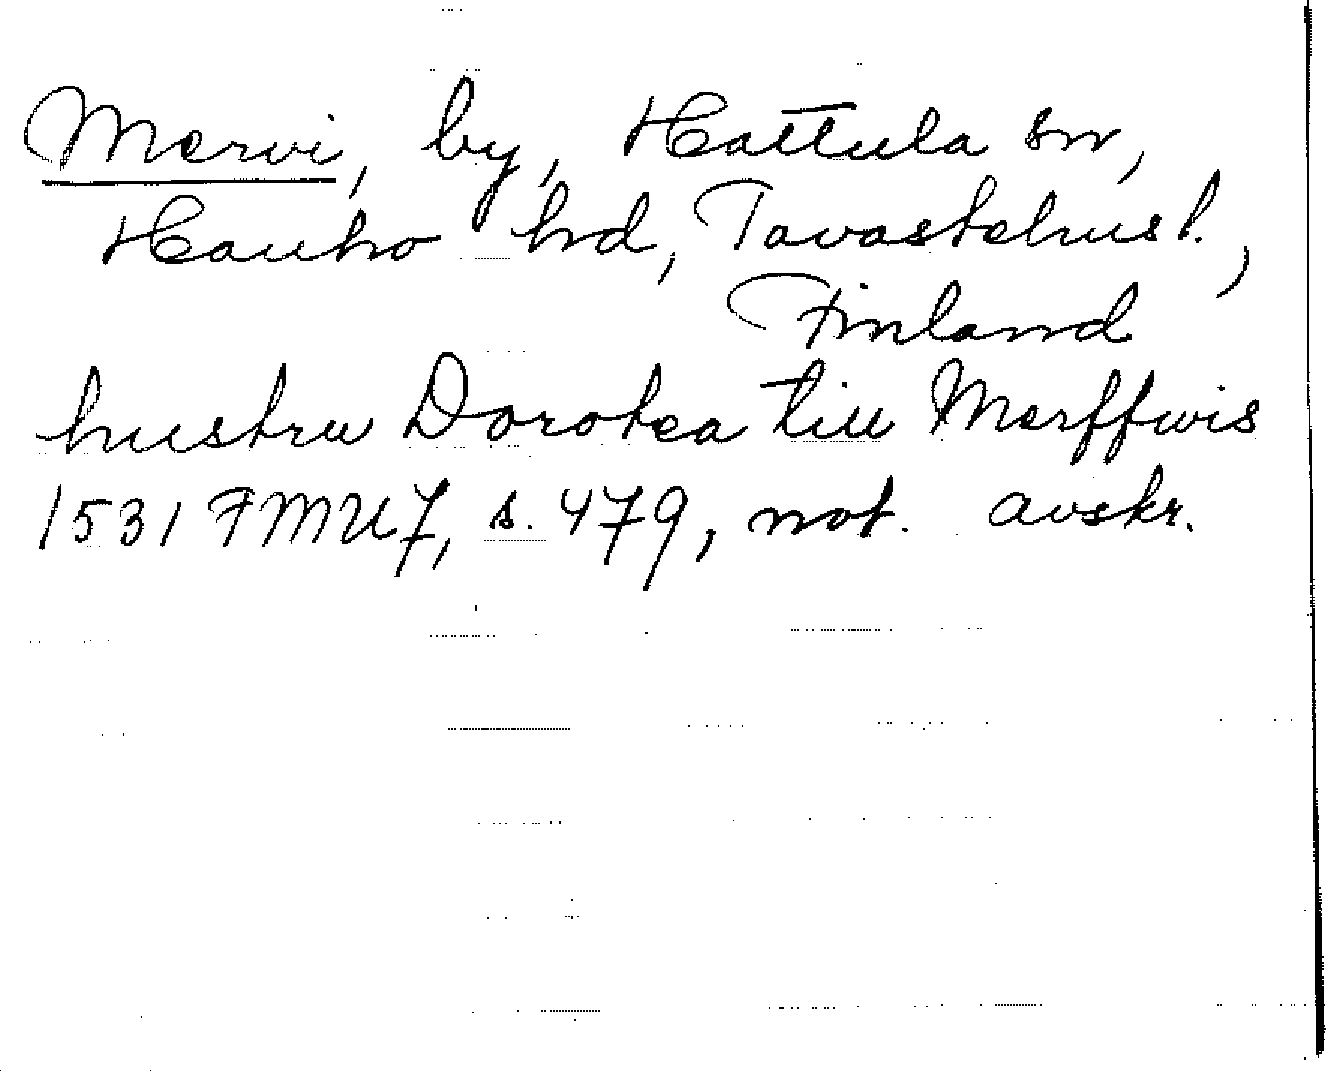 Mervi, by, Hattula sn,
Hauho hd, Tavastehus l.,
Finland
hustru Dorotea till Merffwis
1531 FMU 7, s. 479, not. avskr.